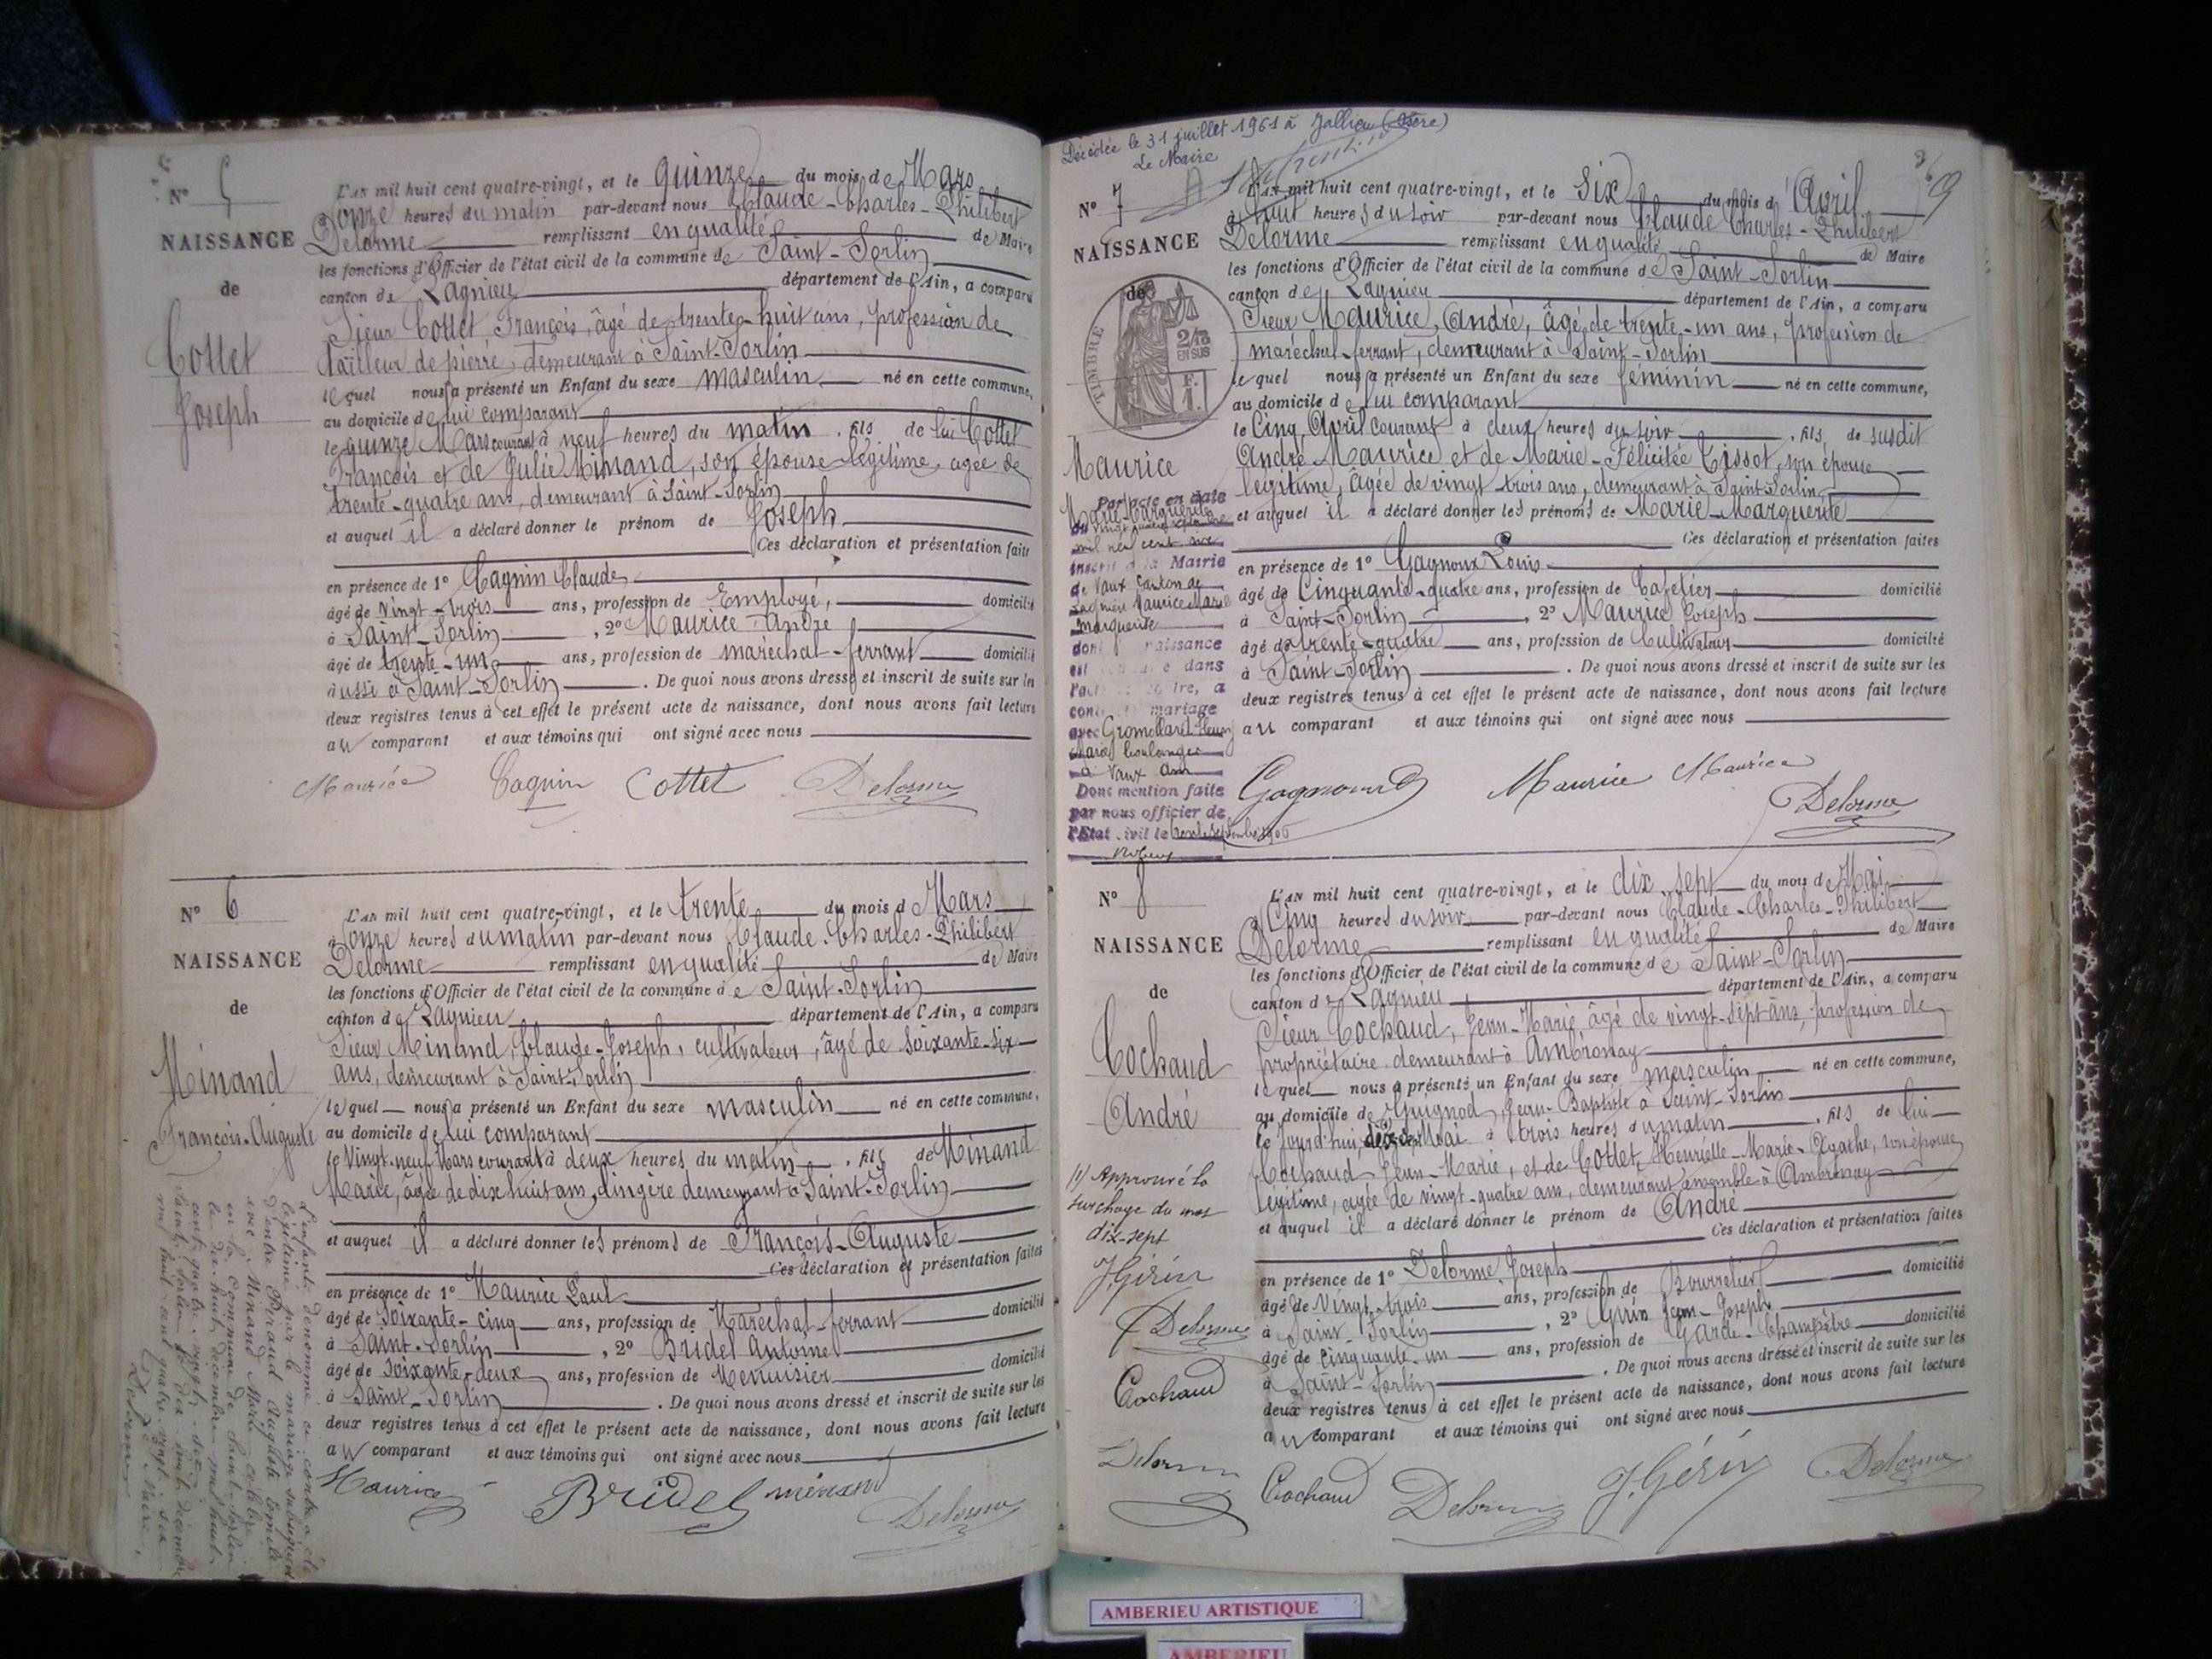 Nº 5
NAISSANCE
de
Cottet
Joseph
L'AN mil huit cent quatre-vingt, et le quinze du mois de Mars
à onze heures du matin par-devant nous Claude-Charles-Philibert
Delorme remplissant en qualité de Maire
les fonctions d'Officier de l'état civil de la commune de Saint-Sorlin
canton de Lagnieu département de l'Ain, a comparu
Sieur Cottet François, âgé de trente-huit ans, profession de
tailleur de pierre, demeurant à Saint-Sorlin
lequel nous a présenté un Enfant du sexe masculin né en cette commune,
au domicile de lui comparant
le quinze Mars courant à neuf heures du matin, fils de lui Cottet
François et de Julie Minand, son épouse légitime, agée de
trente-quatre ans, demeurant à Saint-Sorlin
et auquel il a déclaré donner le prénom de Joseph
Ces déclaration et présentation faites
en présence de 1º Cagnin Claude
âgé de Vingt-trois ans, profession de Employé, domicilié
à Saint-Sorlin, 2º Maurice-André
âgé de trente-un ans, profession de maréchal-ferrant domicilié
aussi à Saint-Sorlin. De quoi nous avons dressé et inscrit de suite sur les
deux registres tenus à cet effet le présent acte de naissance, dont nous avons fait lecture
au comparant et aux témoins qui ont signé avec nous
Maurice Cagnin Cottet Delorme
Nº 6
NAISSANCE
de
Minand
François-Auguste
L'AN mil huit cent quatre-vingt, et le trente du mois d Mars
à onze heures du matin par-devant nous Claude-Charles-Philibert
Delorme remplissant en qualité de Maire
les fonctions d'Officier de l'état civil de la commune de Saint-Sorlin
canton de Lagnieu département de l'Ain, a comparu
Sieur Minand, Claude-Joseph, cultivateur, âgé de soixante-six
ans, demeurant à Saint-Sorlin
lequel nous a présenté un Enfant du sexe masculin né en cette commune,
au domicile de lui comparant
le Vingt-neuf Mars courant à deux heures du matin, fils de Minand
Marie, âgée de dix huit ans, lingère demeurant à Saint-Sorlin
et auquel il a déclaré donner les prénoms de François-Auguste
Ces déclaration et présentation faites
en présence de 1º Maurice Paul
âgé de Soixante-cinq ans, profession de Maréchal-ferrant domicilié
à Saint-Sorlin, 2º Bridel Antoine
âgé de soixante-deux ans, profession de Menuisier domicilié
à Saint-Sorlin. De quoi nous avons dressé et inscrit de suite sur les
deux registres tenus à cet effet le présent acte de naissance, dont nous avons fait lecture
au comparant et aux témoins qui ont signé avec nous
Maurice Bridel minand Delorme
L'enfant dénommé ci contre a été
légitimé par le mariage subséquent
d'entre Péraud Auguste Emile
avec Minand Marie célébré
en la commune de Saint-Sorlin
le dix-huit décembre mil huit
cent quatre-vingt-six
Saint-Sorlin le dix-huit décembre
mil huit cent quatre-vingt-six
Le Maire,
Delorme
Décédée le 31 juillet 1961 à Jallieu (Isère)
Le Maire
9
Nº 7
NAISSANCE
de
TIMBRE
2/10
EN SUS
F.
1.
Maurice
Marie-Marguerite
L'AN mil huit cent quatre-vingt, et le Six du mois d'Avril
à huit heures du soir par-devant nous Claude Charles-Philibert
Delorme remplissant en qualité de Maire
les fonctions d'Officier de l'état civil de la commune de Saint-Sorlin
canton de Lagnieu département de l'Ain, a comparu
Sieur Maurice, André, âgé de trente-un ans, profession de
maréchal-ferrant, demeurant à Saint-Sorlin
lequel nous a présenté un Enfant du sexe féminin né en cette commune,
au domicile de lui comparant
le Cinq Avril courant à deux heures du soir, fils de susdit
André Maurice et de Marie-Félicitée Tissot, son épouse
légitime, âgée de vingt-trois ans, demeurant à Saint-Sorlin
et auquel il a déclaré donner les prénoms de Marie-Marguerite
Ces déclaration et présentation faites
en présence de 1º Gagnoux Louis
âgé de Cinquante-quatre ans, profession de Cafetier domicilié
à Saint-Sorlin, 2º Maurice Joseph
âgé de trente-quatre ans, profession de Cultivateur domicilié
à Saint-Sorlin. De quoi nous avons dressé et inscrit de suite sur les
deux registres tenus à cet effet le présent acte de naissance, dont nous avons fait lecture
au comparant et aux témoins qui ont signé avec nous
Par acte en date
du vingt quatre septembre
mil neuf cent six
inscrit à la Mairie
de Vaux Canton de
Lagnieu Maurice Marie
Marguerite
dont naissance
est dans
l'acte contre, a
contracté mariage
avec Gromollard
boulanger
à Vaux Ain
Dont mention faite
par nous officier de
l'Etat civil le trente septembre 1906
Gagnoux Maurice Maurice
Delorme
Nº 8
NAISSANCE
de
Cochaud
André
L'AN mil huit cent quatre-vingt, et le dix sept du mois de Mai
à Cinq heures du soir par-devant nous Claude-Charles-Philibert
Delorme remplissant en qualité de Maire
les fonctions d'Officier de l'état civil de la commune de Saint-Sorlin
canton de Lagnieu département de l'Ain, a comparu
Sieur Cochaud, Jean-Marie, âgé de vingt-sept ans, profession de
propriétaire demeurant à Ambronay
lequel nous a présenté un Enfant du sexe masculin né en cette commune,
au domicile de Guignod, Jean-Baptiste à Saint-Sorlin
le jourd'hui, Mai à trois heures du matin, fils de lui
Cochaud Jean-Marie, et de Cottet, Henriette-Marie-Agathe, son épouse
légitime, agée de vingt-quatre ans, demeurant ensemble à Ambronay
et auquel il a déclaré donner le prénom de André
Ces déclaration et présentation faites
en présence de 1º Delorme Joseph
âgé de Vingt-trois ans, profession de Bourrelier domicilié
à Saint-Sorlin, 2º Gérin Jean-Joseph
âgé de Cinquante-un ans, profession de Garde-Champêtre domicilié
à Saint-Sorlin. De quoi nous avons dressé et inscrit de suite sur les
deux registres tenus à cet effet le présent acte de naissance, dont nous avons fait lecture
au comparant et aux témoins qui ont signé avec nous
(1) Approuvé la
surchage du mot
dix-sept
J. Gérin
Delorme
Cochaud
Delorme
Cochaud Delorme J. Gérin Delorme
AMBERIEU ARTISTIQUE
AMBERIEU